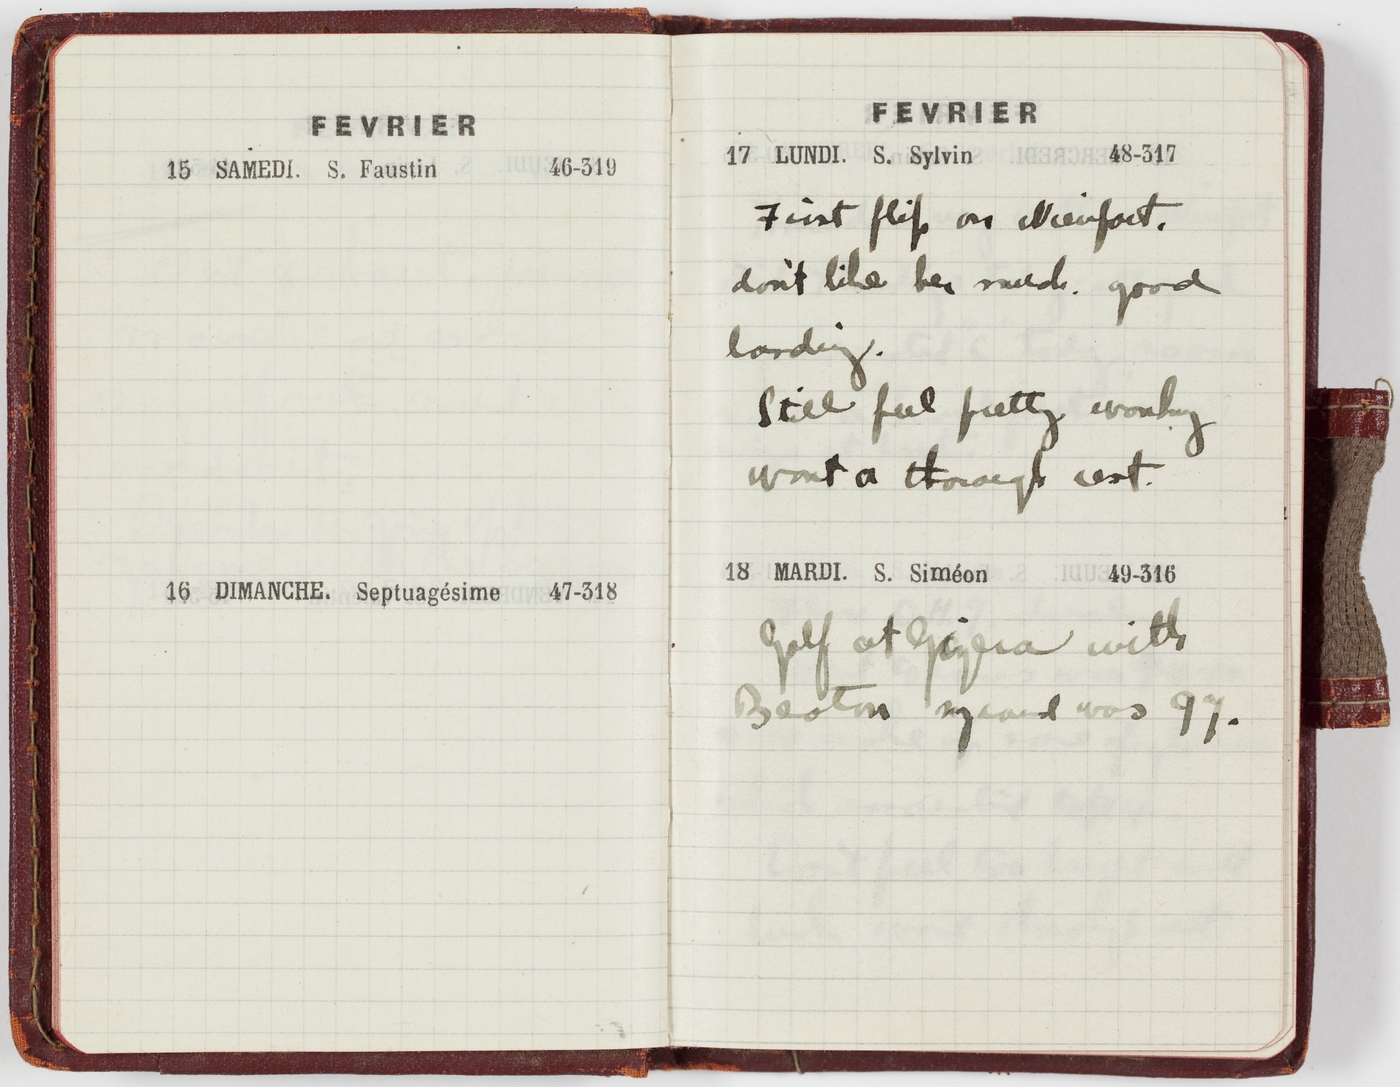 FEVRIER
15 SAMEDI. S. Faustin 46-319
16 DIMANCHE. Septuagésime 47-318
FEVRIER
17 LUNDI. S. Sylvin 48-317
First flip on Nieuport.
don't like her much. good
landing.
Still feel pretty wonky
want a thorough rest.
18 MARDI. S. Siméon 49-316
Golf at Gizera with
Beaton my card was 97.